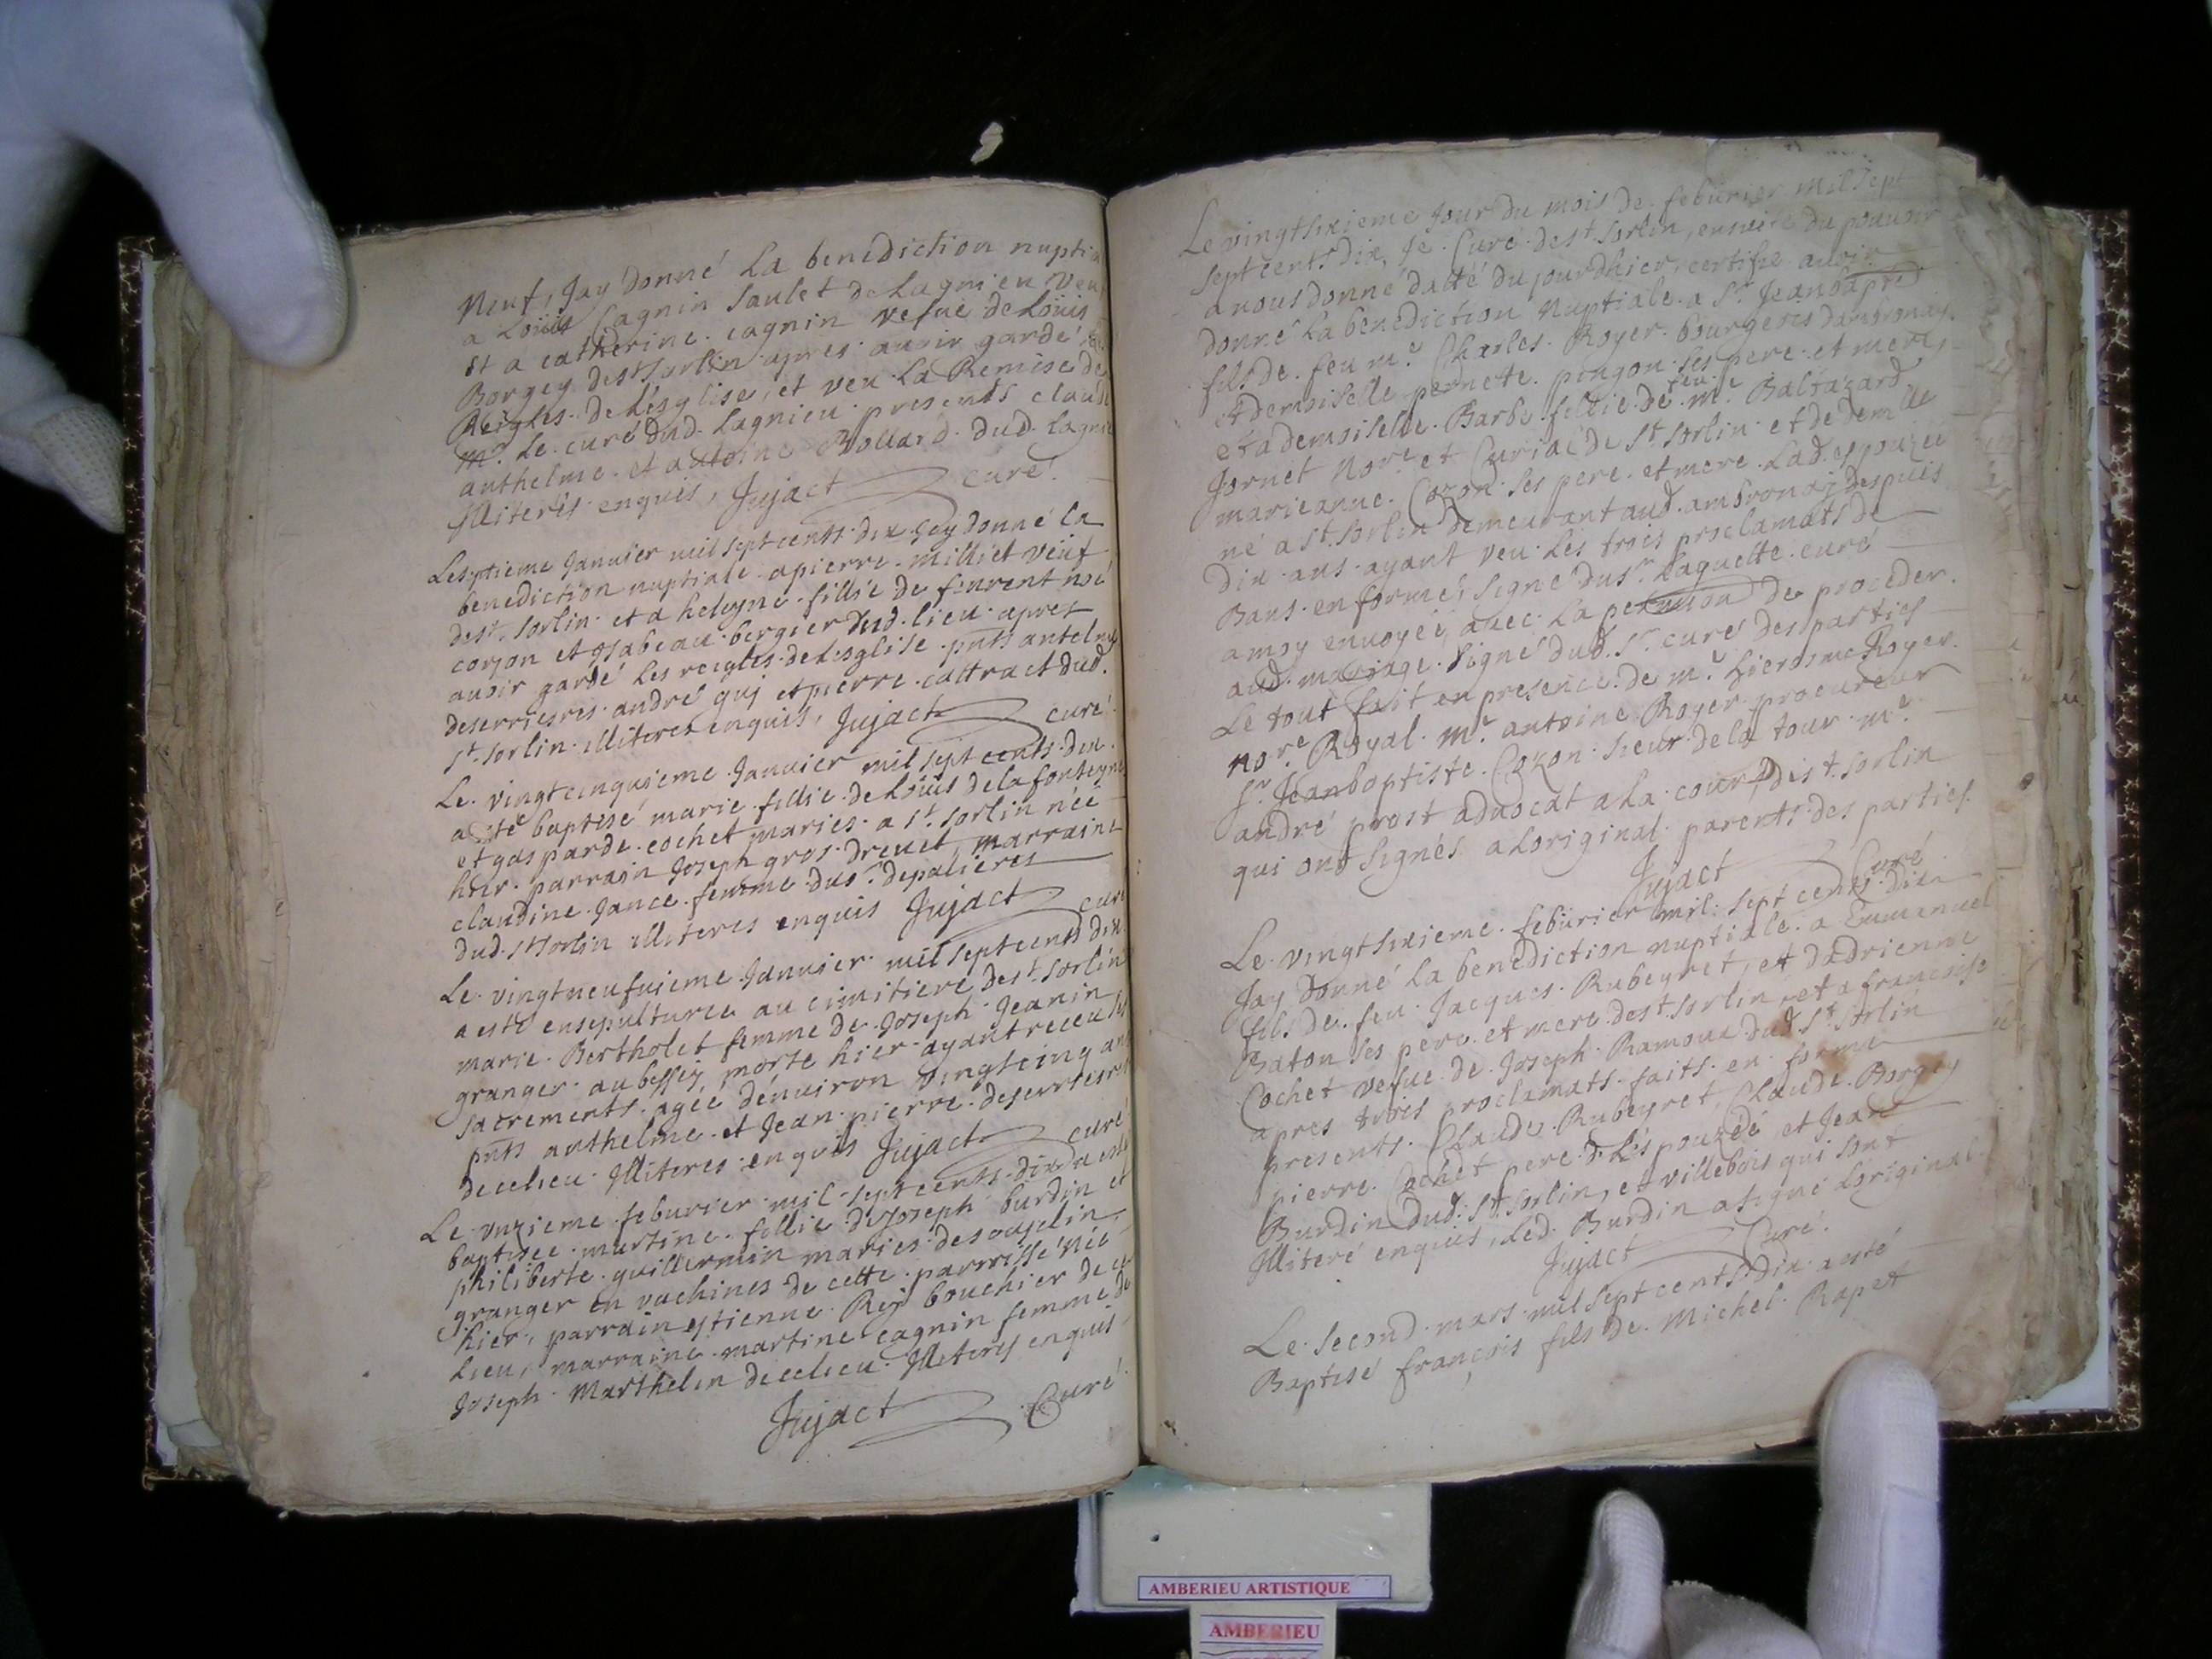 neuf, Jay donné La benediction nuptia
a Loüis Cagnin Saulet de Lagnieu veu
et a catherine cagnin vefue de Loüis
Borgey de st Sorlin apres auoir gardé les
Reigles de L'esglise, et veu La Remise de
mr. Le curé dud. Lagnieu presents claude
anthelme et antoine Vollard dud. Lagnie
Illiterés enquis, Jujact curé.
Le septieme Januier mil sept cents dix Jay donné la
benediction nuptiale a pierre milliet veuf
de st. Sorlin et a heleyne fillie de
corjon et ysabeau bergier dud. lieu apres
auoir gardé Les reigles de L'esglise pnts antelme
deserriesres andré guj et pierre cattract dud.
st. Sorlin illiteres enquis, Jujact curé
Le vingt cinquieme Januier mil sept cents dix
a esté baptisé marie fillie de Loüis de la fonteyne
et gasparde cochet mariés a st. Sorlin née
hier parrain Joseph gros drevet, marraine
claudine Jance femme du sr. depalieres
dud. st Sorlin illiteres enquis Jujact curé
Le vingt neufuieme Januier mil sept cents dix
a esté ensepulturée au cimitiere de st. Sorlin
marie Bertholet femme de Joseph Jeanin
granger au bessey morte hier ayant receu les
sacrements agée d'enuiron vingt cinq ans
pnts anthelme et Jean pierre deserriesres
de ce lieu Illiteres enquis Jujact curé
Le vnzieme feburier mil sept cents dix a esté
baptisée martine fillie de Joseph burdin et
philiberte guillermin mariés de souclin
granger en vachines de cette parroisse née
hier, parrain estienne Rey bouchier de ce
Lieu, marraine martine cagnin femme de
Joseph Marthelin de ce lieu Illiterés enquis
Jujact Curé
Le vingt sixieme Jour du mois de feburier mil sept
sept cents dix, Je Curé de st Sorlin, ensuite du pouuoir
a nous donné datté du jourdhier, certifie auoir
donné La benediction Nuptiale a Sr. Jean bapte
fils de feu me. Charles Royer bourgeois dambronay
et demoiselle pernete pingon ses pere et mere,
et a demoiselle Barbe fillie de feu me. Baltazard
Jornet Nore. et Curial de st Sorlin et de demlle
marieanne Cozon ses pere et mere. Lad. espouzée
né a st. Sorlin demeurant aud. ambronay despuis
dix ans ayant veu Les trois proclamats de
Bans en forme, signé du sr. Laguette curé
a moy enuoyée, auec La permission de proceder
aud. mariage signé dud. sr. curé des parties
Le tout fait en presence de me. hierosme Royer
nore. Royal me. antoine Royer procureur
sr. Jean baptiste Cozon sieur de la tour me.
andré prost aduocat a La cour, de st. Sorlin
qui ont signés a Loriginal parents des parties.
Jujact Curé
Le vingt sixieme feburier mil sept cents dix
Jay donné La benediction nuptiale a Emmanuel
fils de feu Jacques Rubeyret, et dadrienne
Baton ses pere et mere de st. Sorlin et a francoise
Cochet vefue de Joseph Ramoux dud. st. Sorlin
apres trois proclamats faits en forme
presents Claude Rubeyret, Claude Borgey
pierre Cochet pere de Lespouzée et Jean
Burdin dud. st. Sorlin, et villebois qui sont
Illiteré enquis, Led. Burdin a signé Loriginal.
Jujact Curé.
Le second mars mil sept cents dix a esté
Baptisé françois fils de Michel Rapet
AMBERIEU ARTISTIQUE
AMBERIEU